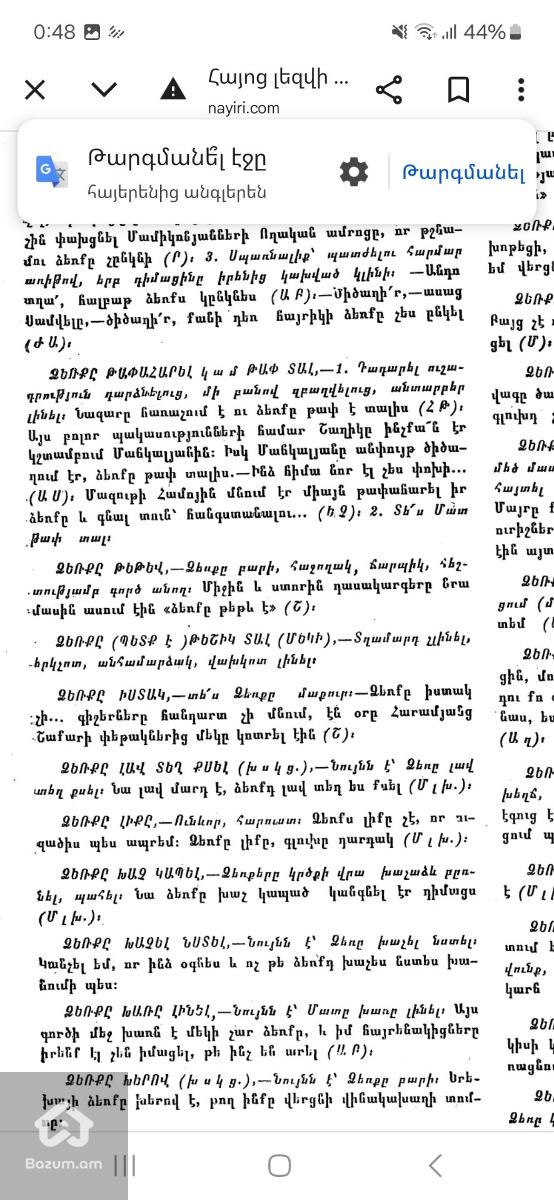 0:48
44%
Հայոց լեզվի ...
nayiri.com
Թարգմանե՞լ էջը
հայերենից անգլերեն
Թարգմանել
շին փախցնել Մամիկոնյանների Ողական ամրոցը, որ թշնա-
մու ձեռքը չընկնի (Ր)։ 3. Սպառնալիք՝ պատժելու հարմար
առիթով, երբ դիմացինը իրենից կախված կլինի։ —Անդո
տղա՛, հալբաթ ձեռքս կընկնես (Ա Բ)։—Ծիծաղի՛ր,—ասաց
Սամվելը,—ծիծաղի՛ր, քանի դեռ հայրիկի ձեռքը չես ընկել
(Ժ Ա)։
ՁԵՌՔԸ ԹԱՓԱՀԱՐԵԼ կամ ԹԱՓ ՏԱԼ,—1. Դադարել ուշա-
գրություն դարձնելուց, մի բանով զբաղվելուց, անտարբեր
լինել։ Նազարը հառաչում է ու ձեռքը թափ է տալիս (Հ Թ)։
Այս բոլոր պակասությունների համար Շաղիկը ինչքա՜ն էր
կշտամբում Մանկալյանին։ Իսկ Մանկալյանը անփույթ ծիծա-
ղում էր, ձեռքը թափ տալիս.—Ինձ հիմա նոր էլ չես փոխի...
(Ա Ս)։ Մազութի Համոյին մնում էր միայն թափահարել իր
ձեռքը և գնալ տուն՝ հանգստանալու... (Ե Չ)։ 2. Տե՛ս Մատ
թափ տալ։
ՁԵՌՔԸ ԹԵԹԵՎ,—Ձեռքը բարի, հաջողակ, ճարպիկ, հեշ-
տությամբ գործ անող։ Միջին և ստորին դասակարգերը նրա
մասին ասում էին «ձեռքը թեթև է» (Շ)։
ՁԵՌՔԸ (ՊԵՏՔ է )ԹԵՇԻԿ ՏԱԼ (ՄԵԿԻ),—Տղամարդ չլինել,
երկչոտ, անհամարձակ, վախկոտ լինել։
ՁԵՌՔԸ ԻՍՏԱԿ,—տե՛ս Ձեռքը մաքուր։—Ձեռքը իստակ
չի... գիշերները հանդարտ չի մնում, էն օրը Հարամյանց
Շաֆարի փեթակներից մեկը կոտրել էին (Շ)։
ՁԵՌՔԸ ԼԱՎ ՏԵՂ ՔՍԵԼ (խսկց.),—Նույնն է՝ Ձեռը լավ
տեղ քսել։ Նա լավ մարդ է, ձեռքդ լավ տեղ ես քսել (Մլխ.)։
ՁԵՌՔԸ ԼԻՔԸ,—Ունևոր, հարուստ։ Ձեռքս լիքը չէ, որ ու-
զածիս պես ապրեմ։ Ձեռքը լիքը, գլուխը դարդակ (Մլխ.)։
ՁԵՌՔԸ ԽԱՉ ԿԱՊԵԼ,—Ձեռքերը կրծքի վրա խաչաձև բըռ-
նել, պահել։ Նա ձեռքը խաչ կապած կանգնել էր դիմացս
(Մլխ.)։
ՁԵՌՔԸ ԽԱՉԵԼ ՆՍՏԵԼ,—Նույնն է՝ Ձեռը խաչել նստել։
Կանչել եմ, որ ինձ օգնես և ոչ թե ձեռքդ խաչես նստես խա-
նումի պես։
ՁԵՌՔԸ ԽԱՌԸ ԼԻՆԵԼ,—Նույնն է՝ Մատը խառը լինել։ Այս
գործի մեջ խառն է մեկի չար ձեռքը, և իմ հայրենակիցները
իրենք էլ չեն իմացել, թե ինչ են արել (Ա Բ)։
ՁԵՌՔԸ ԽԵՐՈՎ (խսկց.),—Նույնն է՝ Ձեռքը բարի։ Երե-
խայի ձեռքը խերով է, թող ինքը վերցնի վիճակախաղի տոմ-
սը։
Bazum.am